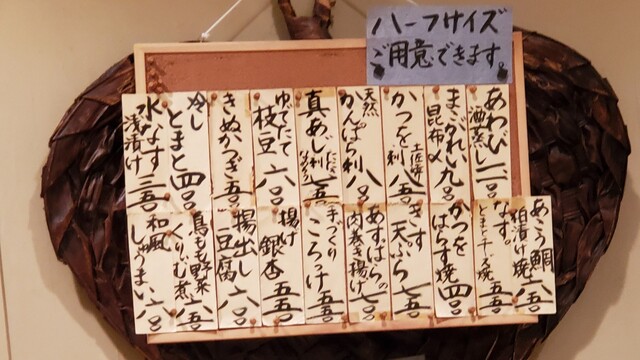 ハーフサイズ
ご用意できます。
あわび
酒蒸し
まごがれい
昆布〆 九〇
かつを刺 土佐造り 八五〇
天然
かんぱち刺 八〇
真あじ刺
ゆでたて
枝豆 六八〇
きぬかつぎ 五五〇
冷し
とまと 四〇
水なす
浅漬け 三五〇
あこう鯛
粕漬け焼 六八五〇
なす。
とまとチーズ焼 五五〇
かつを
はらす焼 四〇
きす
天ぷら 七五〇
あすぱらの
肉巻き揚げ 七〇
手づくり
ころっけ 五五〇
揚げ
銀杏 五五〇
揚出し
豆腐 六〇
鳥もも野菜
くりぃむ煮 六八五〇
和風
しゅうまい 六〇